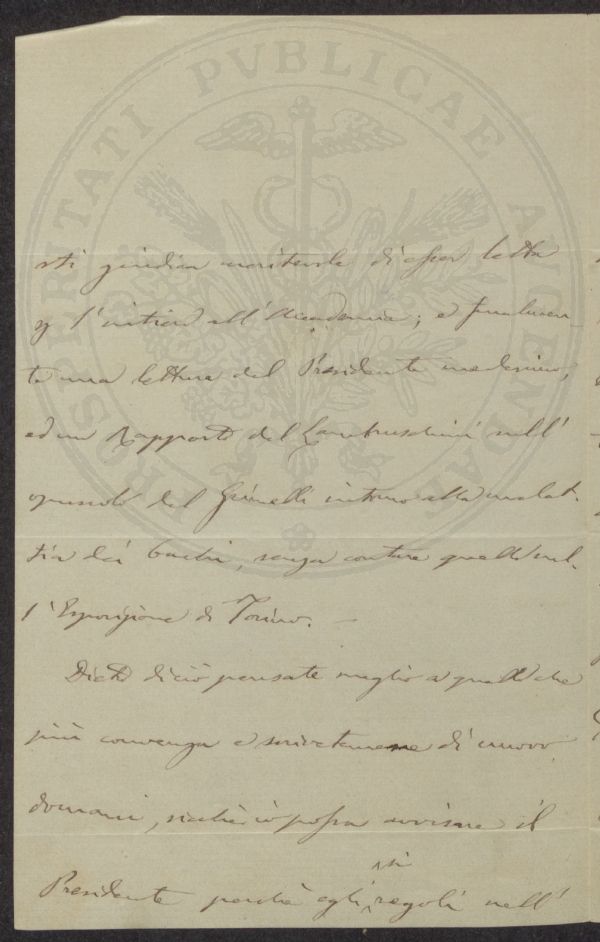 PROSPERITATI PVBLICAE AVGENDAE
sti giudica meritevole di esser letta
p l'intiero all'Accademia; e finalmen-
te una lettura del Presidente medesimo,
ed un Rapporto del Lambruschini sull'
opuscolo del Grimelli intorno alla malat-
tia dei bachi, senza contare quello sul-
l'Esposizione di Torino. —
Dietro di ciò pensate meglio a quello che
più convenga e scrivetemene di nuovo
domani, sicchè io possa avvisare il
Presidente perchè egli si regoli nell'